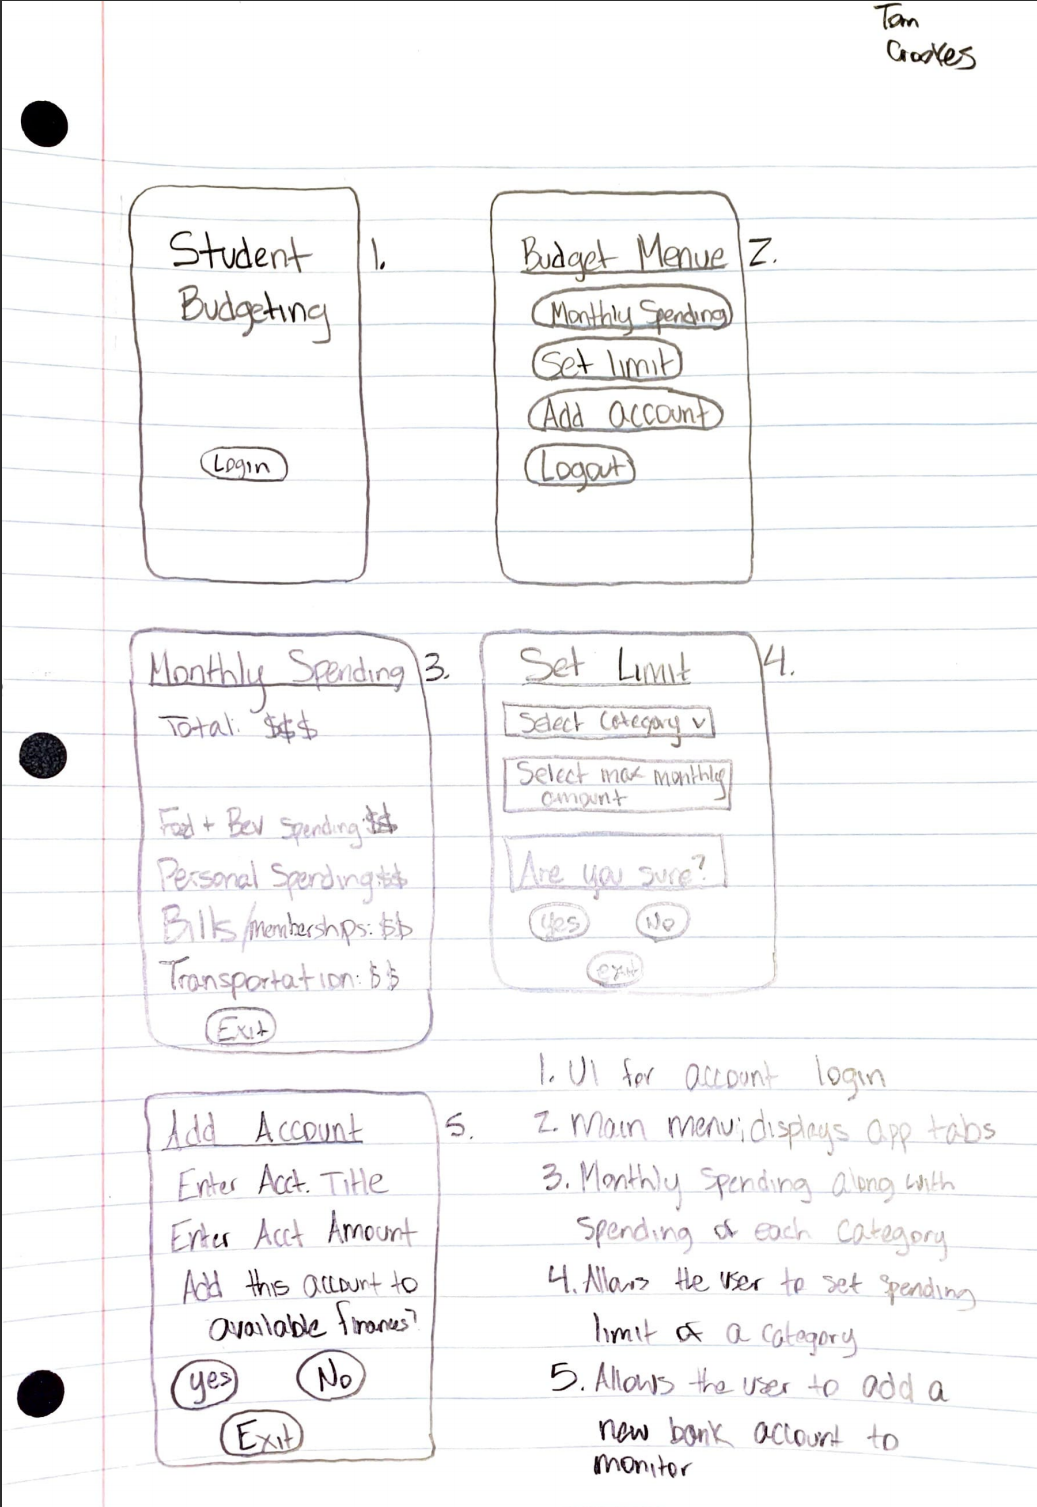 Tom
Crookes
Student
Budgeting
Login
1.
Budget Menue
Monthly Spending
Set limit
Add account
Logout
2.
Monthly Spending
Total: $$$
Food + Bev spending: $$
Personal Spending: $$
Bills/memberships: $$
Transportation: $$
Exit
3.
Set Limit
Select Category v
Select max monthly
amount
Are you sure?
Yes No
exit
4.
Add Account
Enter Acct. Title
Enter Acct Amount
Add this account to
available finances?
yes No
Exit
5.
1. UI for account login
2. Main menu; displays app tabs
3. Monthly Spending along with
spending of each category
4. Allows the user to set spending
limit of a category
5. Allows the user to add a
new bank account to
monitor